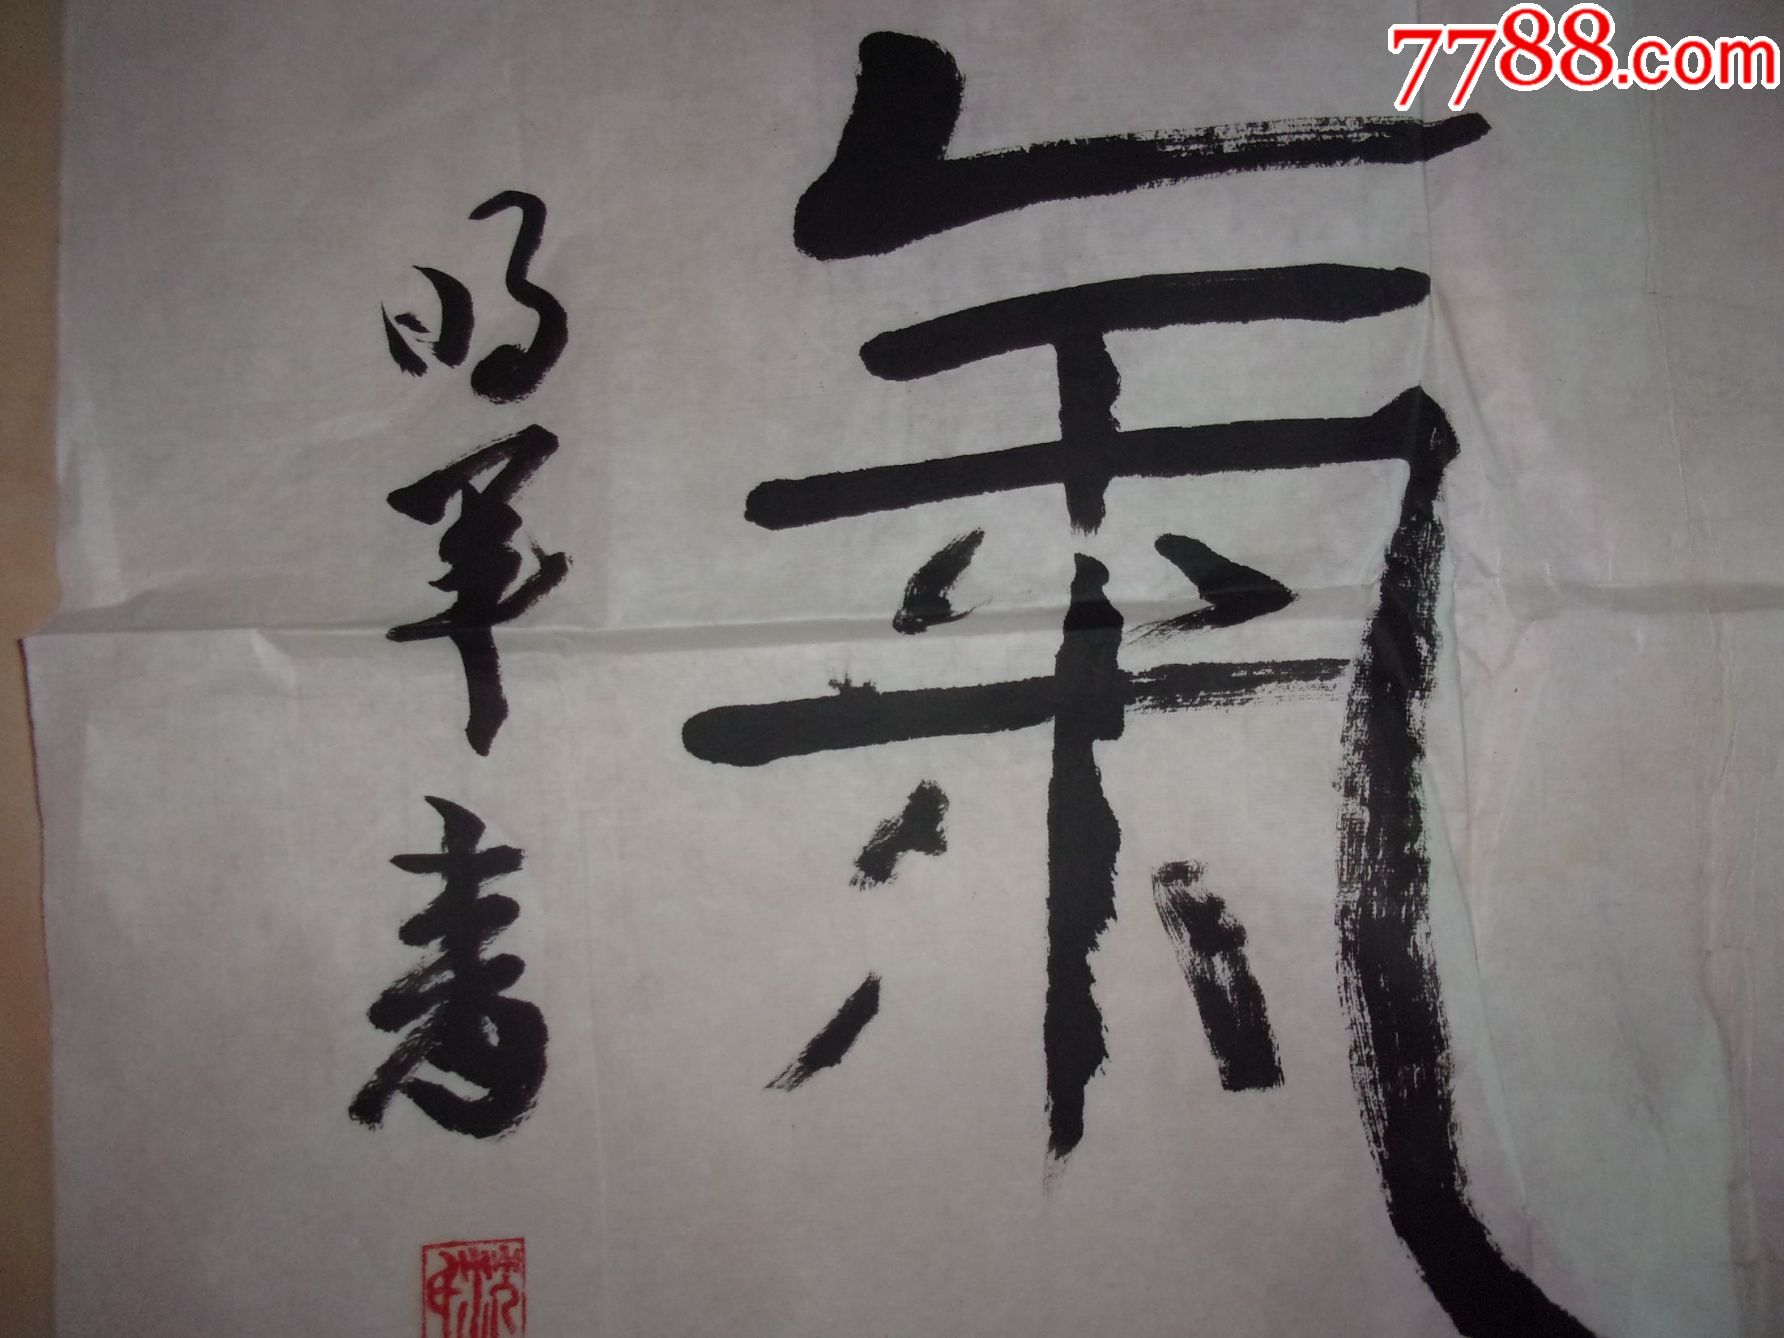 7788.com
氣
明军书